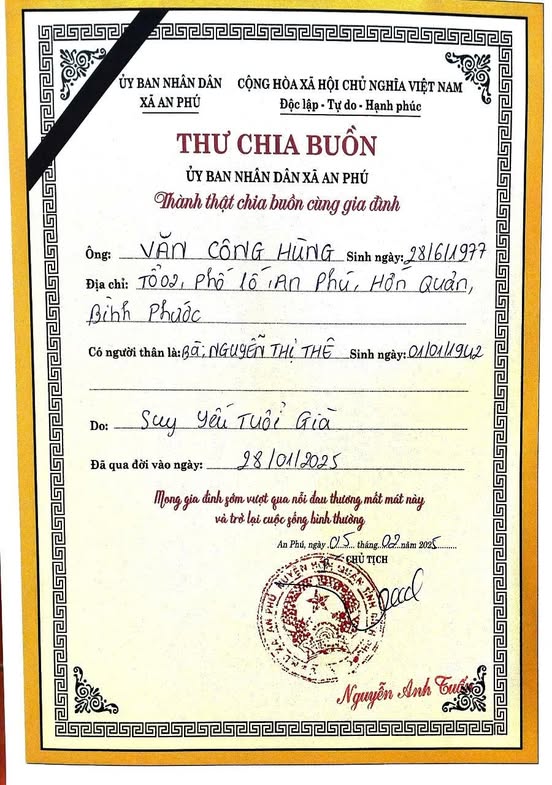 ỦY BAN NHÂN DÂN
XÃ AN PHÚ
CỘNG HÒA XÃ HỘI CHỦ NGHĨA VIỆT NAM
Độc lập - Tự do - Hạnh phúc
THƯ CHIA BUỒN
ỦY BAN NHÂN DÂN XÃ AN PHÚ
Thành thật chia buồn cùng gia đình
Ông: VĂN CÔNG HÙNG Sinh ngày: 28/6/1977
Địa chỉ: Tổ 02, Phố Lố, An Phú, Hớn Quản,
Bình Phước
Có người thân là: Bà: NGUYỄN THỊ THÊ Sinh ngày: 01/01/1942
Do: Suy Yếu Tuổi Già
Đã qua đời vào ngày: 28/01/2025
Mong gia đình sớm vượt qua nỗi đau thương mất mát này
và trở lại cuộc sống bình thường
An Phú, ngày 05 tháng 02 năm 2025
CHỦ TỊCH
XÃ AN PHÚ HUYỆN HỚN QUẢN TỈNH
Nguyễn Anh Tuấn